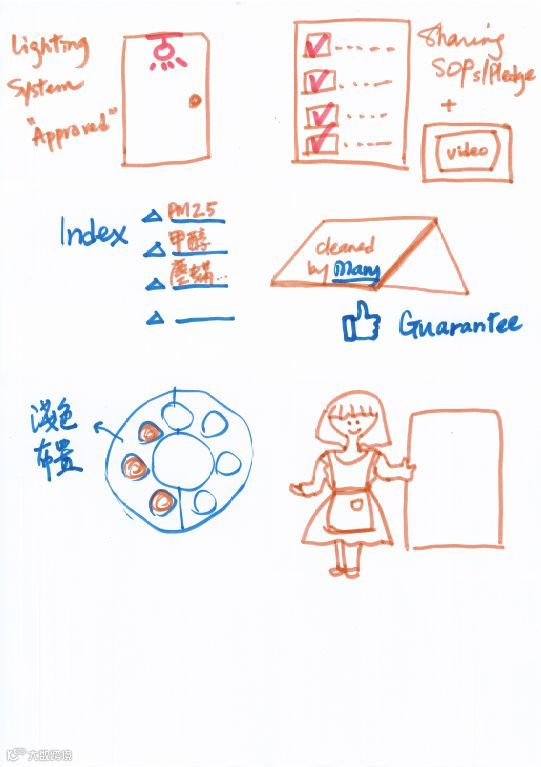 Lighting
System
"Approved"
Sharing
SOPs/Pledge
+
video
Index
PM2.5
甲醇
塵蟎...
cleaned
by Mary
Guarantee
浅色
布置
大数跨境